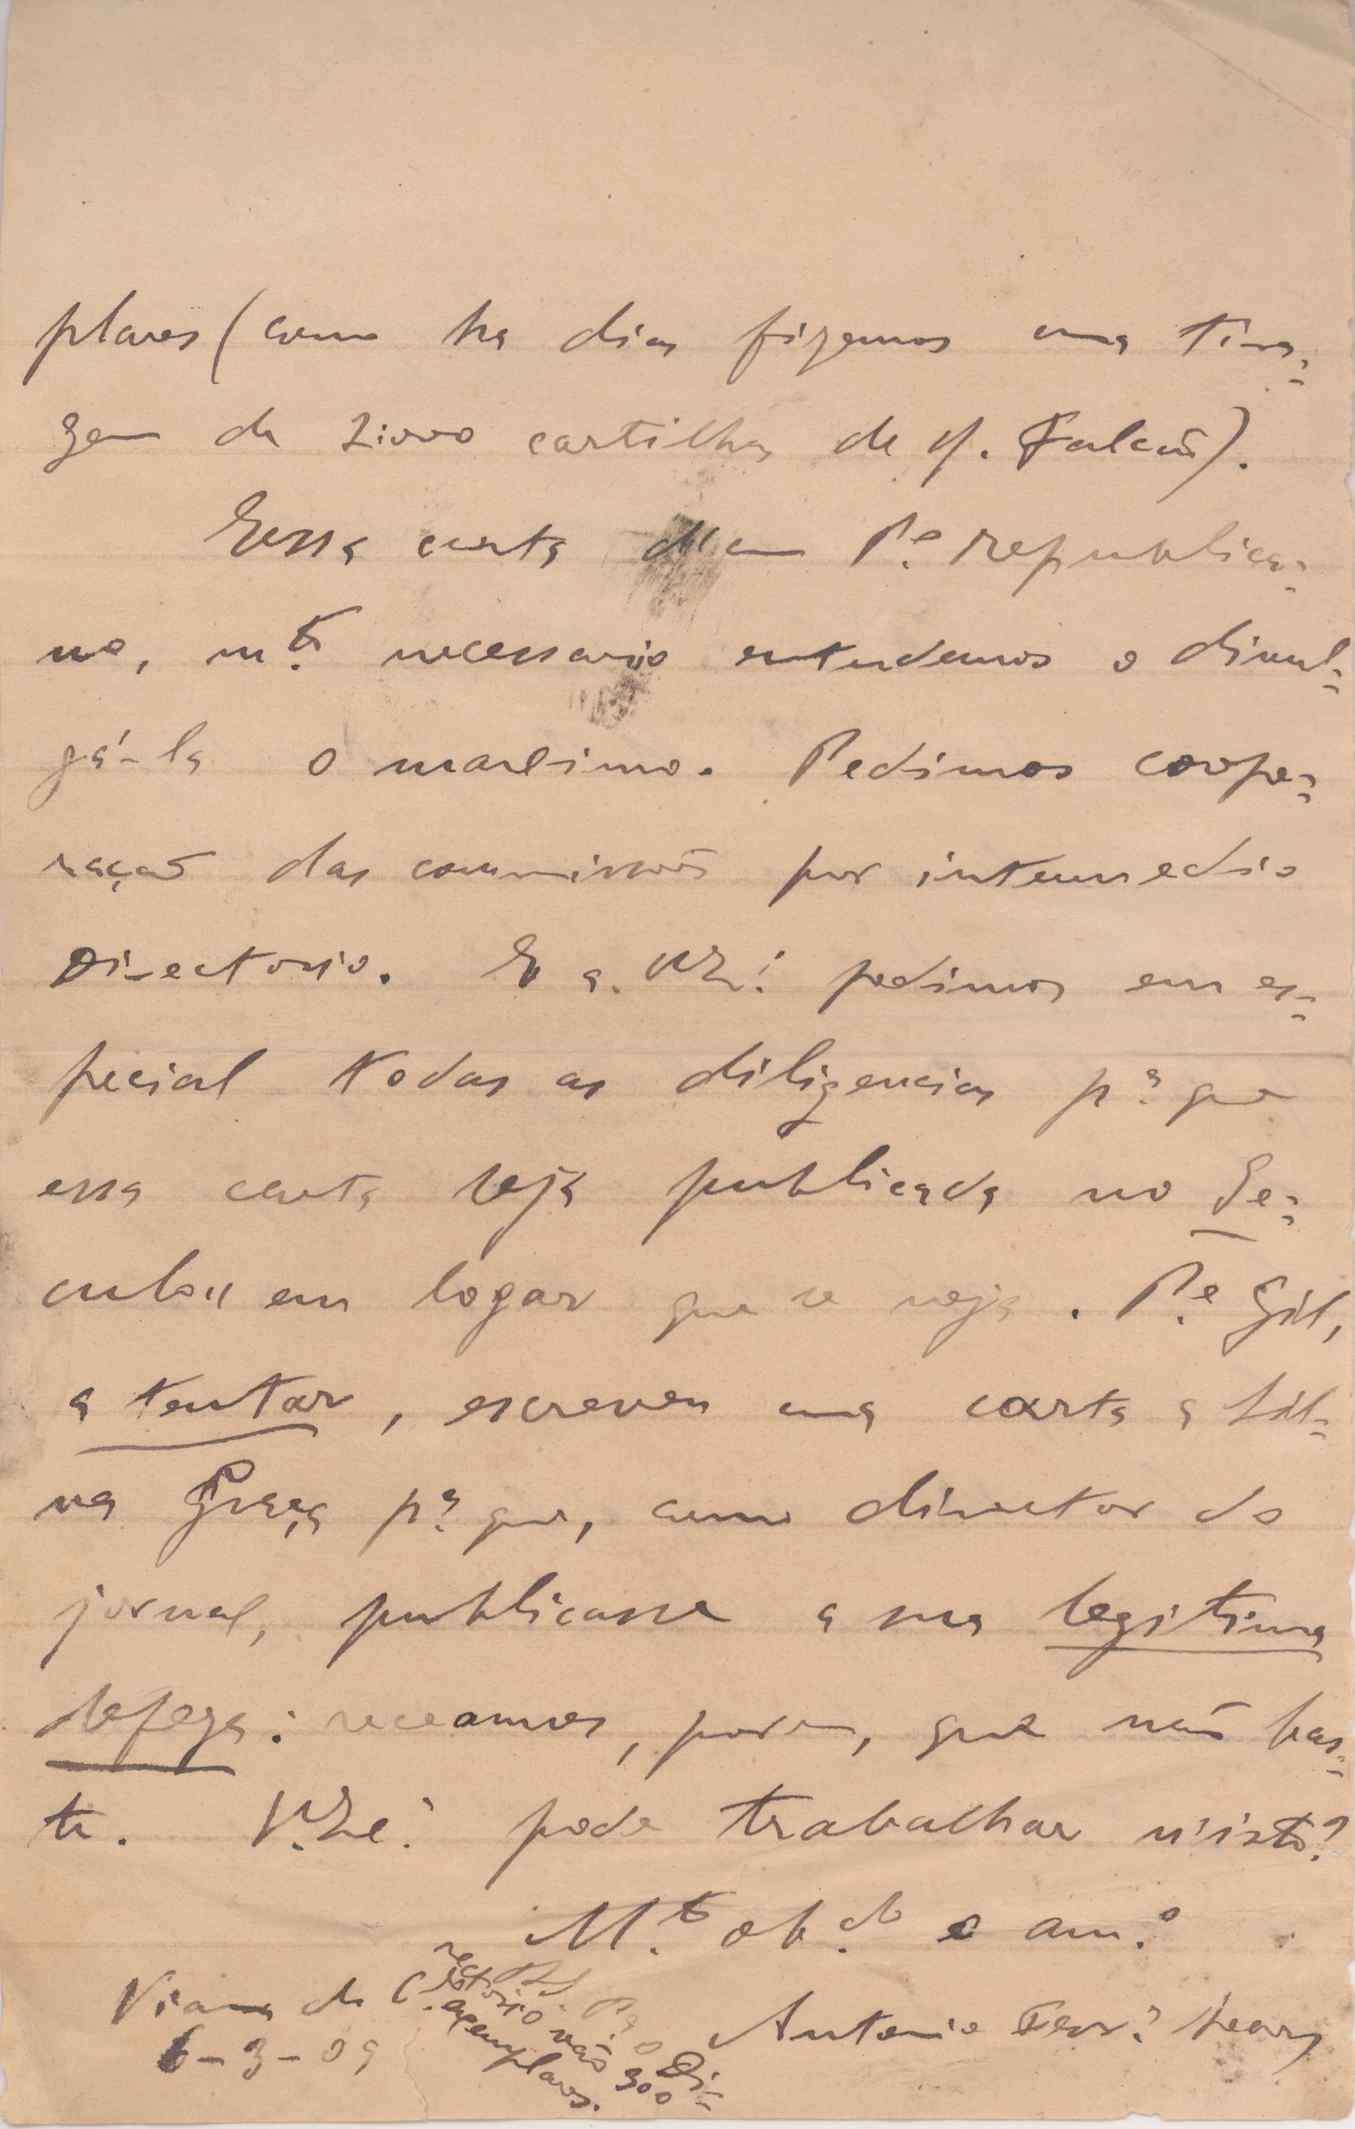 plares (como ha dias fizemos uma tira-
gem de 2:000 cartilhas de J. Falcão).
Essa carta d'um P.e republica-
no, m.to necessario entendemos o divul-
gá-la o maximo. Pedimos coope-
ração das commissões por intermedio
Directorio. E a V. Ex.ª pedimos em es-
pecial todas as diligencias p.ª que
essa carta seja publicada no Se-
culo" em logar que se veja. P.e Gil,
a tentar, escreveu uma carta a Sil-
va Graça p.ª que, como director do
jornal, publicasse a sua legitima
defeza: receamos, porem, que não bas-
te. V. Ex.ª pode trabalhar n'isto?
M.to ob.do e am.o
Antonio Ferr.ª Soares
Viana do C.
6-3-09
P.S. P.ª o Di-
rectorio vão 300
exemplares.